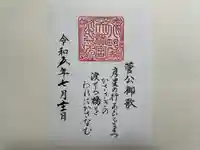 菅公御歌
彦星の行あひをまつ
かささぎの
渡せる橋を
われにかさなむ
令和五年七月日